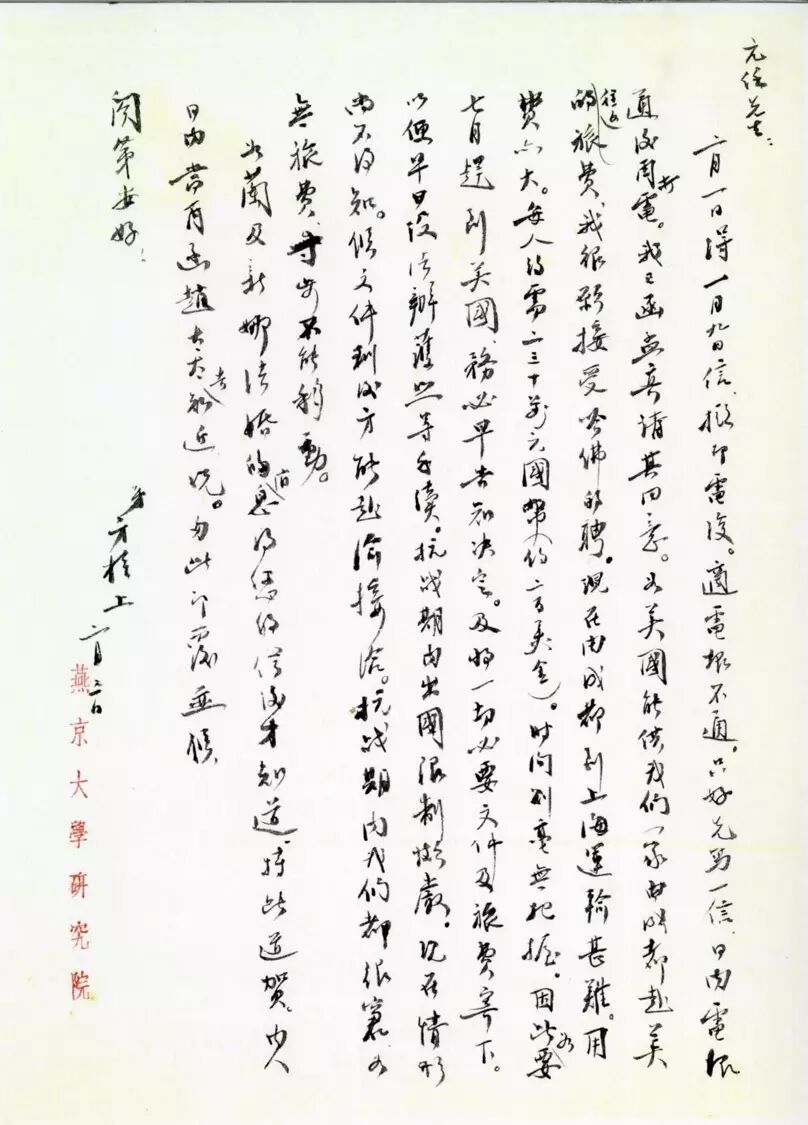 元任先生：
二月一日得一月九日信，擬即電復。適電報不通。只好先寫一信，日內電報
通後周打電。我已函孟真請其同意。如美國能供我們一家由成都赴美
的往返旅費，我很願接受哈佛的聘。現在由成都到上海運輸甚難。用
費亦大。每人約需二三十萬元國幣（約二百美金）。時間則毫無把握。因此如要
七月趕到美國，務必早告知決定。及將一切必要文件及旅費寄下。
以便早日設法辦護照等手續。抗戰期內出國限制極嚴。現在情形
尚不得知。候文件到後方能赴渝接洽。抗戰期內我們都很窮，如
無旅費，寸步不能移動。
如蘭及新娜結婚的消息得您的信後才知道，特此道賀。內人
日內當再函趙太太報告近況。匆此即覆並候
閤第安好！
弟方桂上 二月二日
燕京大學研究院